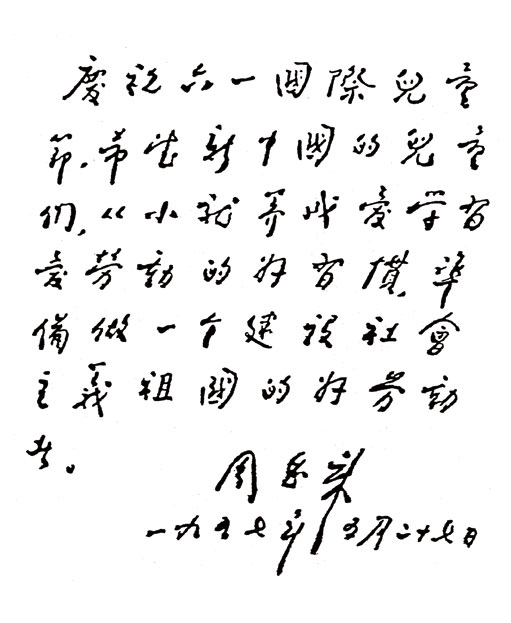 慶祝六一國際兒童
節，希望新中國的兒童
們，从小就养成愛学習
愛劳動的好習慣，準
備做一个建設社會
主義祖國的好劳動
者。
周恩来
一九五七年五月二十七日